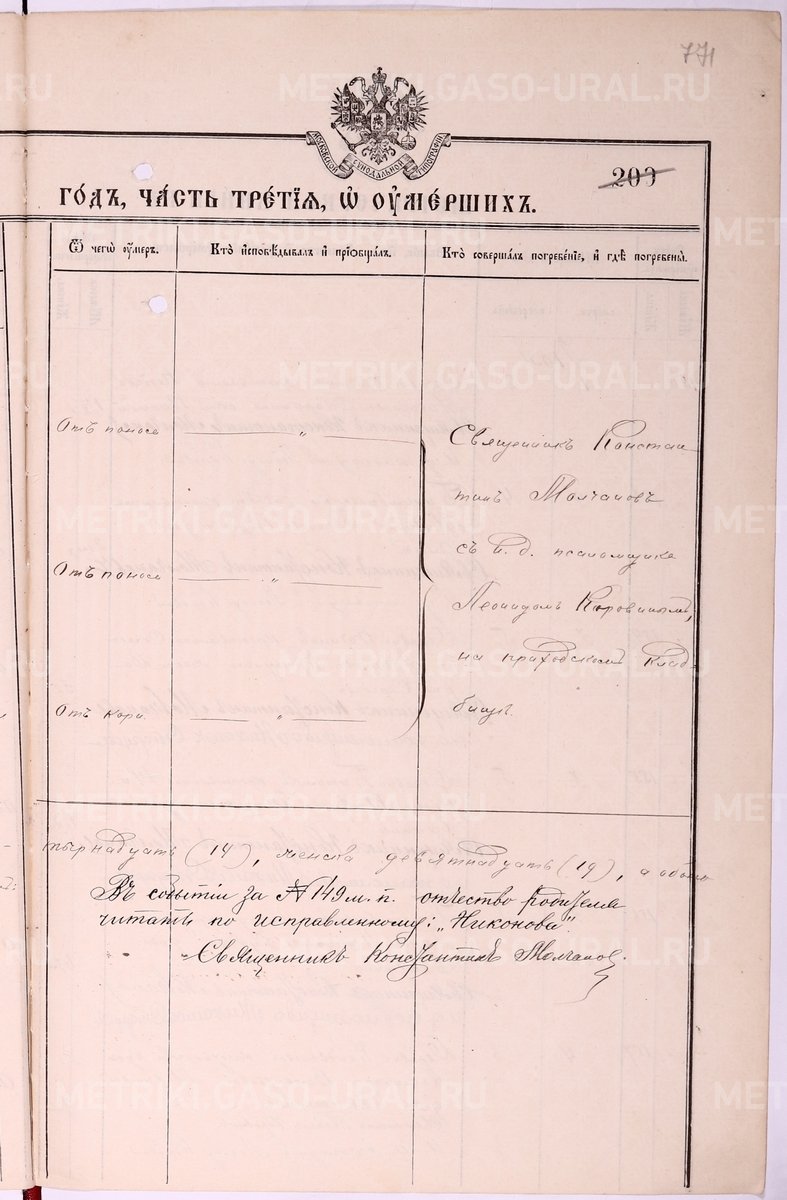 771
МОСКОВСКОЙ СѴНОДАЛЬНОЙ ТИПОГРАФІИ
200
ГОДЪ, ЧАСТЬ ТРЕТІЯ, Ѡ ОУМЕРШИХЪ.
Ѿ чегѡ оумеръ.
Кто исповѣдывалъ и прїобщалъ.
Кто совершалъ погребенїе, и гдѣ погребены.
Отъ поноса — „ —
Отъ поноса — „ —
Отъ кори. — „ —
Священникъ Констан-
тинъ Молчановъ
съ и. д. псаломщика
Леонидомъ Коровинымъ,
на приходскомъ клад-
бищѣ.
тырнадцать (14), женска девятнадцать (19), а обоего
Въ событіи за № 149 м. п. отчество родителя
читать по исправленному: „Никонова".
Священникъ Константинъ Молчановъ.
METRIKI.GASO-URAL.RU